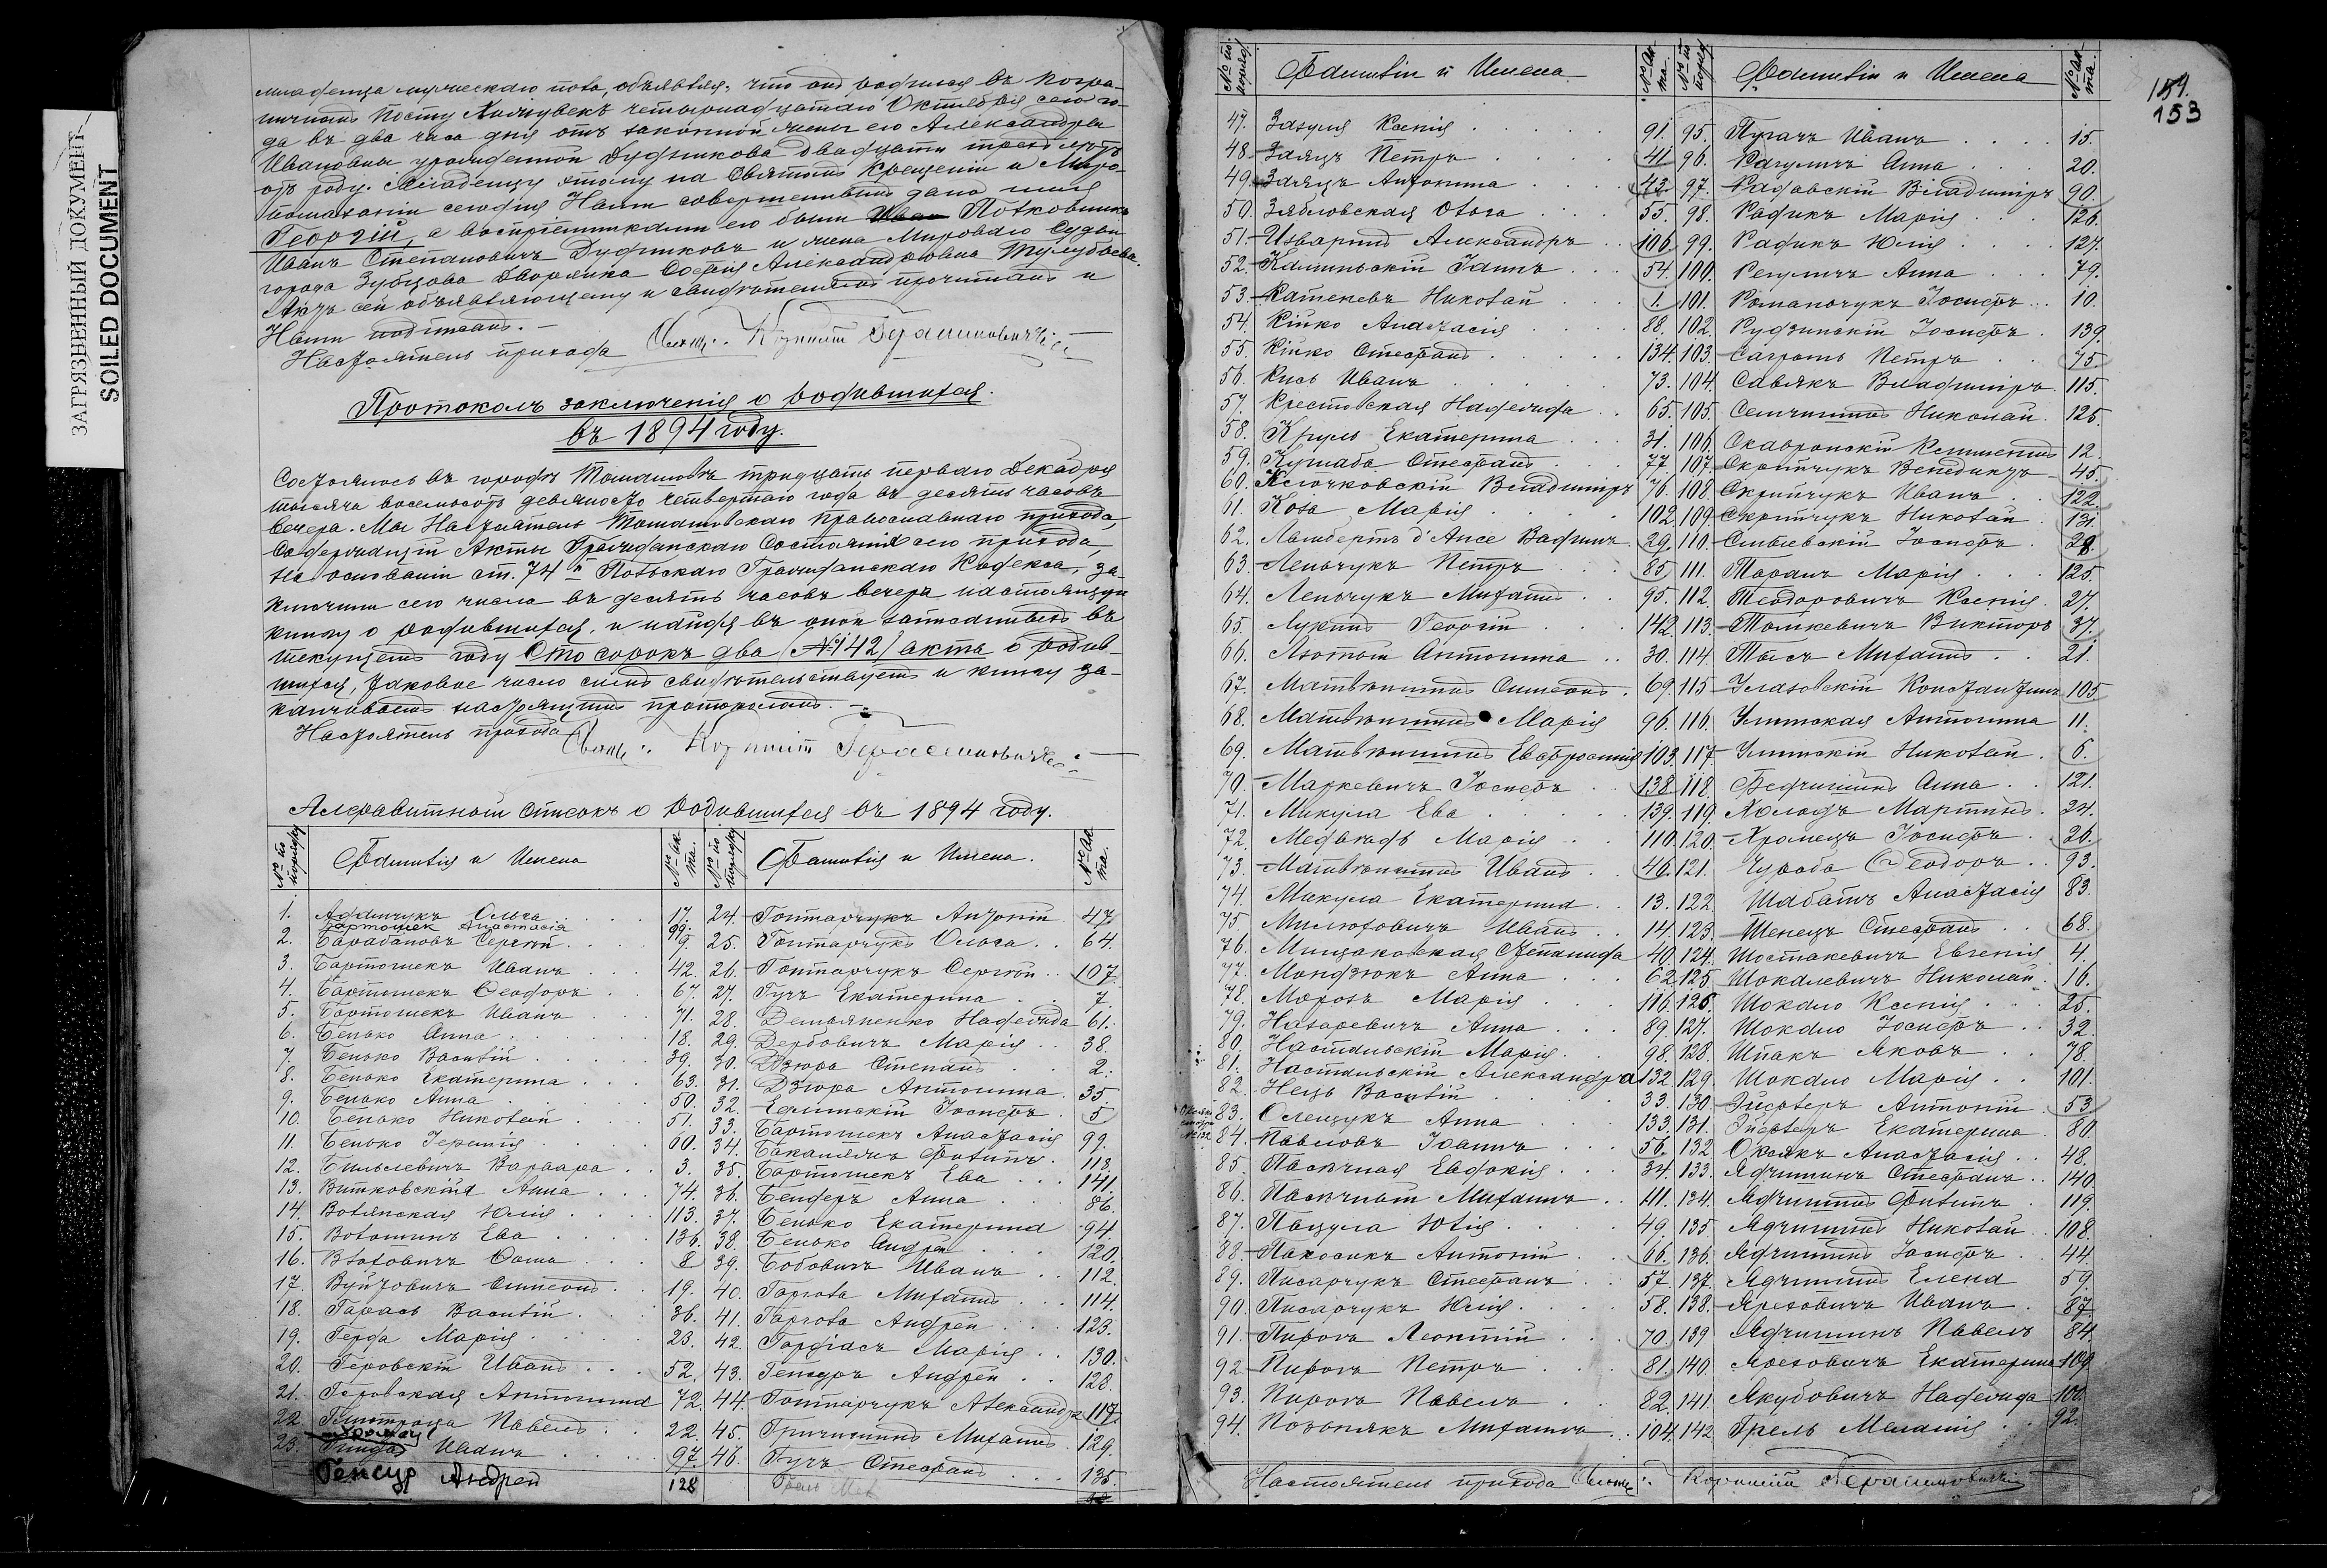 ЗАГРЯЗНЕННЫЙ ДОКУМЕНТ
SOILED DOCUMENT
младенца мужескаго пола, объявляя, что онъ родился въ погра-
ничномъ посту четырнадцатаго Октября сего го-
да въ два часа дня отъ законной жены его Александры
Ивановны урожденной Дудникова двадцати трехъ лѣтъ
отъ роду. Младенцу этому на Святомъ Крещеніи и Миро-
помазаніи сегодня Нами совершенныхъ дано имя
Георгій, а воспріемниками его были Полковникъ
Иванъ Степановичъ Дудниковъ и жена Мироваго Судьи
города Зубцова дворянка Софія Александровна
Актъ сей объявляющему и свидѣтелямъ прочитанъ и
Нами подписанъ.
Настоятель прихода Свящ. Корнилій Герасимовичъ
Протоколъ заключенія о родившихся
въ 1894 году.
Состоялось въ городѣ Томашовѣ тридцать перваго Декабря
тысяча восемьсотъ девяносто четвертаго года въ десять часовъ
вечера. Мы Настоятель Томашовскаго православнаго прихода,
Содержащій Акты Гражданскаго Состоянія сего прихода,
на основаніи ст. 74й Польскаго Гражданскаго Кодекса, за-
ключили сего числа въ десять часовъ вечера настоящую
книгу о родившихся, и найдя въ оной записанныхъ въ
текущемъ году Сто сорокъ два (№142) акта о родив-
шихся, таковое число симъ свидѣтельствуемъ и книгу за-
канчиваемъ настоящимъ протоколомъ.
Настоятель прихода Свящ. Корнилій Герасимовичъ
Алфавитный списокъ о родившихся въ 1894 году.
№ по порядку Фамилія и Имена № акта. № по порядку Фамилія и Имена. № акта.
1. Адамчукъ Ольга 17. 24. Гонтарчукъ Антоній 47
Бартошек Анастасія 99.
2. Барабановъ Сергѣй 9. 25. Гонтарчукъ Ольга 64.
3. Бартошекъ Иванъ 42. 26. Гонтарчукъ Сергѣй 107.
4. Бартошекъ Ѳеодоръ 67. 27. Гучъ Екатерина 7.
5. Бартошекъ Иванъ 71. 28. Демьяненко Надежда 61.
6. Бенько Анна 18. 29. Дербовичъ Марія 38.
7. Бенько Василій 39. 30. Дзюра Степанъ 2.
8. Бенько Екатерина 63. 31. Дзюра Антонина 35.
9. Бенько Анна 50. 32. Іосифъ 5
10. Бенько Николай 51. 33. Бартошекъ Анастасія 99.
11. Бенько Іеремія 60. 34. Филипъ 118.
12. Варвара 3. 35. Бартошекъ Ева 141.
13. Витковская Анна 74. 36. Бендеръ Анна 86.
14. Волянская Юлія 113. 37. Бенько Екатерина 94.
15. Волошинъ Ева 136. 38. Бенько Андрей 120.
16. Ѳома 8 39. Бобовичъ Иванъ 112.
17. Вуйтовичъ Симеонъ 19. 40. Гаргола Михаилъ 114.
18. Гарась Василій 36. 41. Гаргола Андрей 123.
19. Герда Марія 23. 42. Гордіасъ Марія 130.
20. Геровскій Иванъ 52. 43. Генсуръ Андрей 128.
21. Геровская Антонина 72. 44. Гонтарчукъ Александръ 117.
22. Павелъ 22. 45. Гричишинъ Михаилъ 129.
23. Иванъ 97. 46. Гучъ Стефанъ 135.
Генсур Андрей 128
189.
153
№ по порядку Фамиліи и Имена № акта. № по порядку Фамиліи и Имена № акта.
47. Зазуля Ксенія 91. 95. Пугачъ Иванъ 15.
48. Заяцъ Петръ 41. 96. Рагуличъ Анна 20.
49. Заяцъ Антонина 43. 97. Радавскій Владиміръ 90.
50. Зябловская Ольга 55. 98. Радикъ Марія 126.
51. Изваринъ Александръ 106. 99. Радикъ Юлія 127.
52. Калиньскій Іаннъ 54. 100. Регуличъ Анна 79.
53. Катеневъ Николай 1. 101. Романчукъ Іосифъ 10.
54. Кійко Анастасія 88. 102. Рудзинскій Іосифъ 139.
55. Кійко Стефанъ 134. 103. Петръ 75.
56. Кись Иванъ 73. 104. Савякъ Владиміръ 115.
57. Надежда 65. 105. Семчишинъ Николай 125.
58. Круль Екатерина 31. 106. Скавронскій 12.
59. Стефанъ 77. 107. Скрипчукъ Венедиктъ 45.
60. Клочковскій Владиміръ 76. 108. Скрипчукъ Иванъ 122.
61. Коза Марія 102. 109. Скрипчукъ Николай 131.
62. Ламбертъ д'Ансе Вадимъ 29. 110. Іосифъ 28.
63. Леньчукъ Петръ 85. 111. Таранъ Марія 125.
64. Леньчукъ Михаилъ 95. 112. Теодоровичъ Ксенія 27.
65. Лукинъ Георгій 142. 113. Томкевичъ Викторъ 37.
66. Лютый Антонина 30. 114. Тысъ Михаилъ 21.
67. Матвіишинъ Симеонъ 69. 115. Улазовскій Константинъ 105
68. Матвіишинъ Марія 96. 116. Улитская Антонина 11.
69. Матвіишинъ Евфросинія 103. 117. Улитскій Николай 6.
70. Маркевичъ Іосифъ 138. 118. Анна 121.
71. Микула Ева 139. 119. Холодъ Мартинъ 24.
72. Марія 110. 120. Хромецъ Іосифъ 26.
73. Матвіишинъ Иванъ 46. 121. Чуроба Ѳеодоръ 93.
74. Микула Екатерина 13. 122. Шабатъ Анастасія 83.
75. Иванъ 14. 123. Шенецъ Стефанъ 68.
76. Степанида 40. 124. Шостакевичъ Евгенія 4.
77. Мондзюкъ Анна 62. 125. Шокалевичъ Николай 16.
78. Морозъ Марія 116. 126. Шокало Ксенія 25.
79. Назаревичъ Анна 89. 127. Шокало Іосифъ 32.
80. Настальскій Марія 98. 128. Шпакъ Яковъ 78.
81. Настальскій Александра 132. 129. Шокало Марія 101.
82. Нець Василій 33. 130. Антоній 53
83. Олещукъ Анна 133. 131. Екатерина 80.
84. Павловъ Іоаннъ 56. 132. Анастасія 48.
85. Пасѣчная Евдокія 34. 133. Ядчишинъ Стефанъ 140.
86. Пасѣчный Михаилъ 111. 134. Ядчишинъ Филипъ 119.
87. Пацула Юлія 49. 135. Ядчишинъ Николай 108.
88. Пакосикъ Антоній 66. 136. Ядчишинъ Іосифъ 44.
89. Писарчукъ Стефанъ 57. 137. Ядчишинъ Елена 59
90. Писарчукъ Юлія 58. 138. Яреховичъ Иванъ 87.
91. Пирогъ Леонтій 70. 139. Ядчишинъ Павелъ 84.
92. Пирогъ Петръ 81. 140. Яреховичъ Екатерина 109
93. Пирогъ Павелъ 82. 141. Якубовичъ Надежда 100.
94. Позьнякъ Михаилъ 104. 142. Грель Меланія 92.
Настоятель прихода Свящ. Корнилій Герасимовичъ